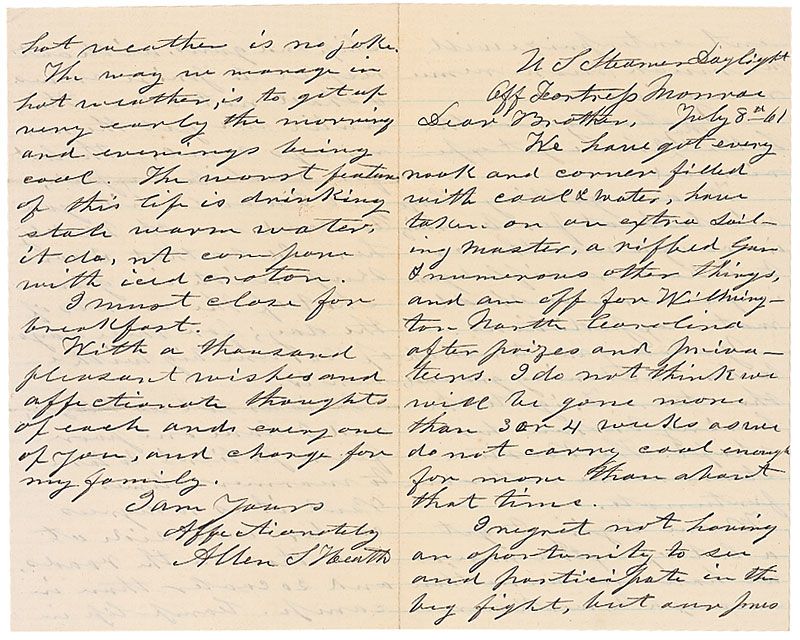 U S Steamer Daylight
Off Fortress Monroe
Dear Brother, July 8th 61
We have got every
nook and corner filled
with coal & water, have
taken on an extra Sail-
ing Master, a rifled Gun
& numerous other things,
and am off for Wilming-
ton North Carolina
after prizes and priva-
teers. I do not think we
will be gone more
than 3 or 4 weeks as we
do not carry coal enough
for more than about
that time.
I regret not having
an oportunity to see
and participate in the
big fight, but our
hot weather is no joke.
The way we manage in
hot weather, is to get up
very early the morning
and evenings being
cool. The worst feature
of this life is drinking
stale warm water,
it do, nt compare
with iced croton.
I must close for
breakfast.
With a thousand
pleasant wishes and
affectionate thoughts
of each and every one
of you, and change for
my family.
I am Yours
Affectionately
Allen S Heath